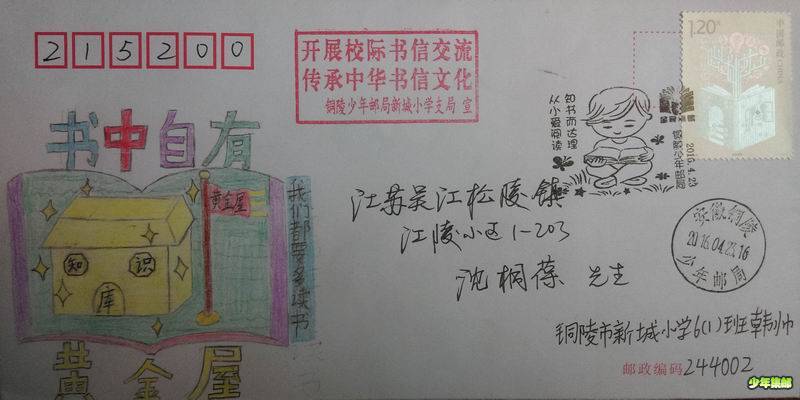 215200
开展校际书信交流
传承中华书信文化
铜陵少年邮局新城小学支局 宣
1.20元
中国邮政
CHINA
知书而达理
从小爱阅读
铜陵少年邮局
2016.4.23
书中自有
黄金屋
知
识
库
我们都要多读书
黄金屋
江苏吴江松陵镇
江陵小区1-203
沈桐葆 先生
安徽铜陵
2016.04.23.16
少年邮局
铜陵市新城小学6(1)班韩帅
邮政编码 244002
少年集邮